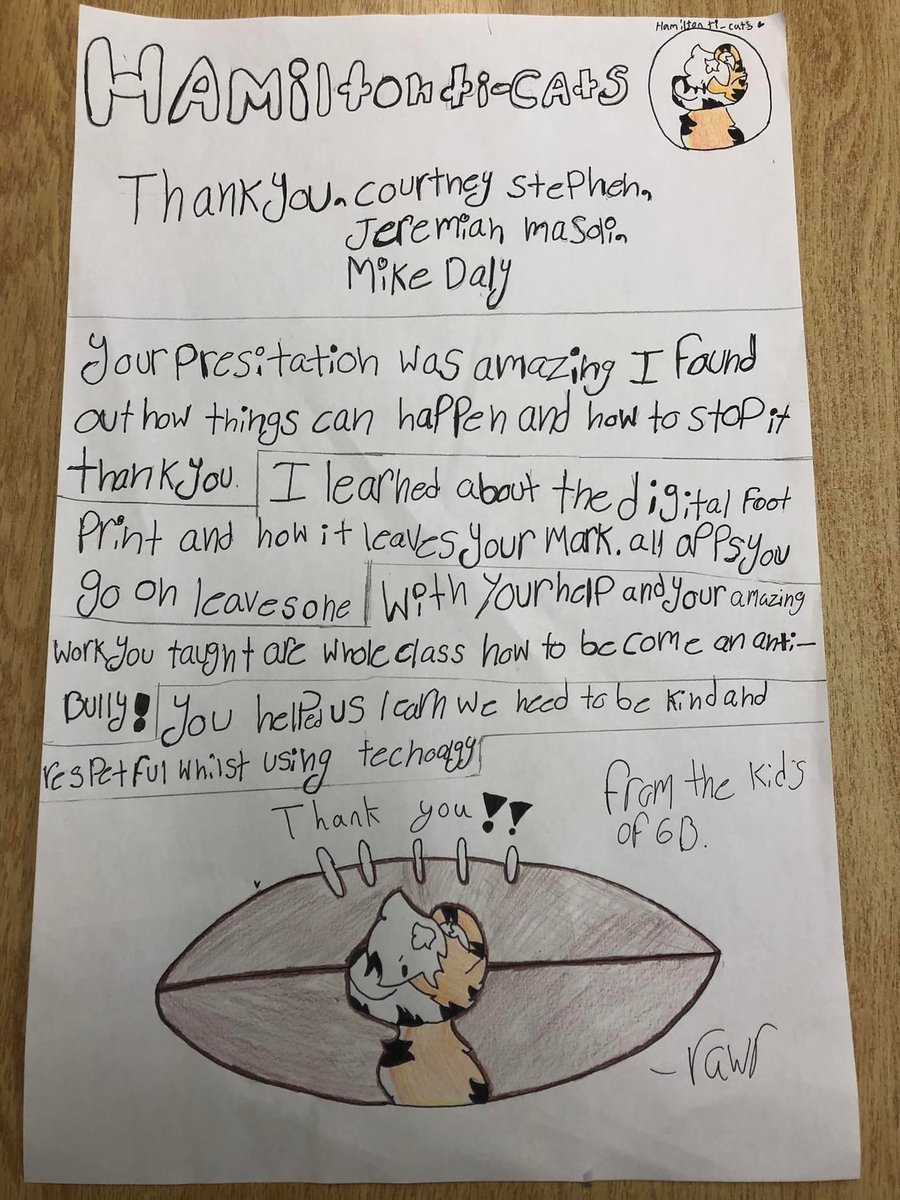 Hamilton ti-cats
HAMilton ti-CAtS
Thank you, courtney Stephen,
Jeremiah masoli,
Mike Daly
Your Presitation was amazing I found
out how things can happen and how to stop it
thank you. I learned about the digital Foot
Print and how it leaves your mark. all apps you
go on leaves one With Your help and your amazing
work you taught are whole class how to become an anti-
Bully! You helped us learn we need to be kind and
respetful whilst using techoolgy
Thank you!!
from the kid's
of 6B.
-rawr